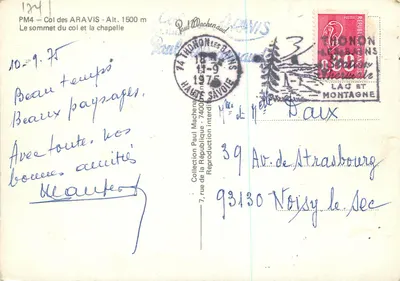 1741
PM4 - Col des ARAVIS - Alt. 1500 m
Le sommet du col et la chapelle
10-9.75
Beau temps
Beaux paysages.
Avec toutes nos
bonnes amitiés
Collection Paul Macherat
7, rue de la République - 7400
Reproduction interdite
Paul Macherat
ARAVIS
74 THONON LES BAINS
18 H
11-9
1975
HAUTE SAVOIE
THONON
LES BAINS
Station
thermale
LAC ET
MONTAGNE
Mr et Mme
Daux
39 Av. de Strasbourg
93130 Noisy le Sec